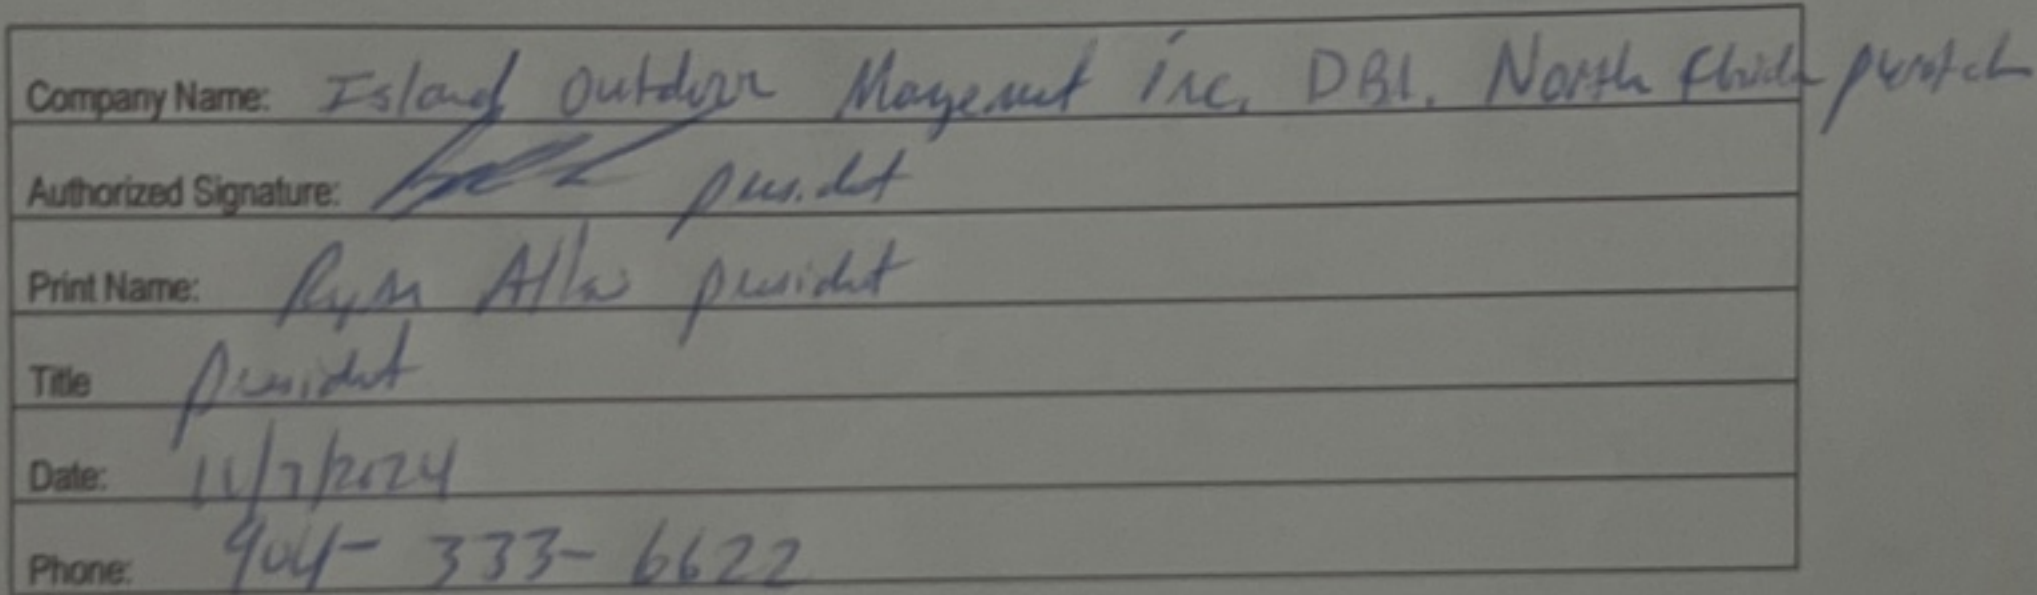 Company Name: Island Outdoor Management Inc. DBA. North Florida
Authorized Signature: president
Print Name: Ryan Allen president
Title president
Date: 11/7/2024
Phone: 904-333-6622